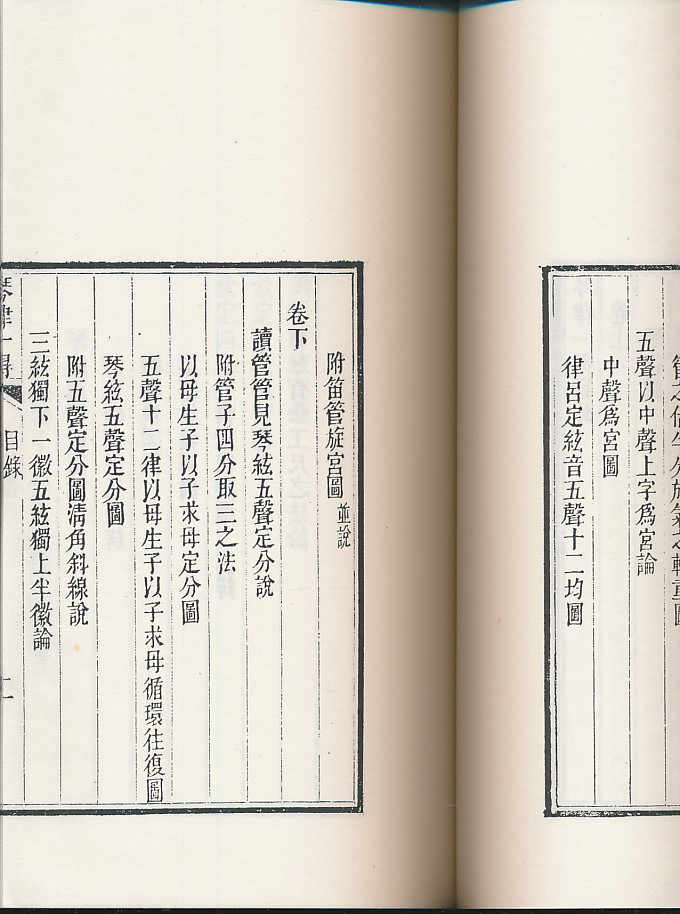 五聲以中聲上字爲宮論
中聲爲宮圖
律呂定絃音五聲十二均圖
附笛管旋宮圖 並說
卷下
讀管管見琴絃五聲定分說
附管子四分取三之法
以母生子以子求母定分圖
五聲十二律以母生子以子求母循環往復圖
琴絃五聲定分圖
附五聲定分圖清角斜線說
三絃獨下一徽五絃獨上半徽論
琴律一得 目錄 二